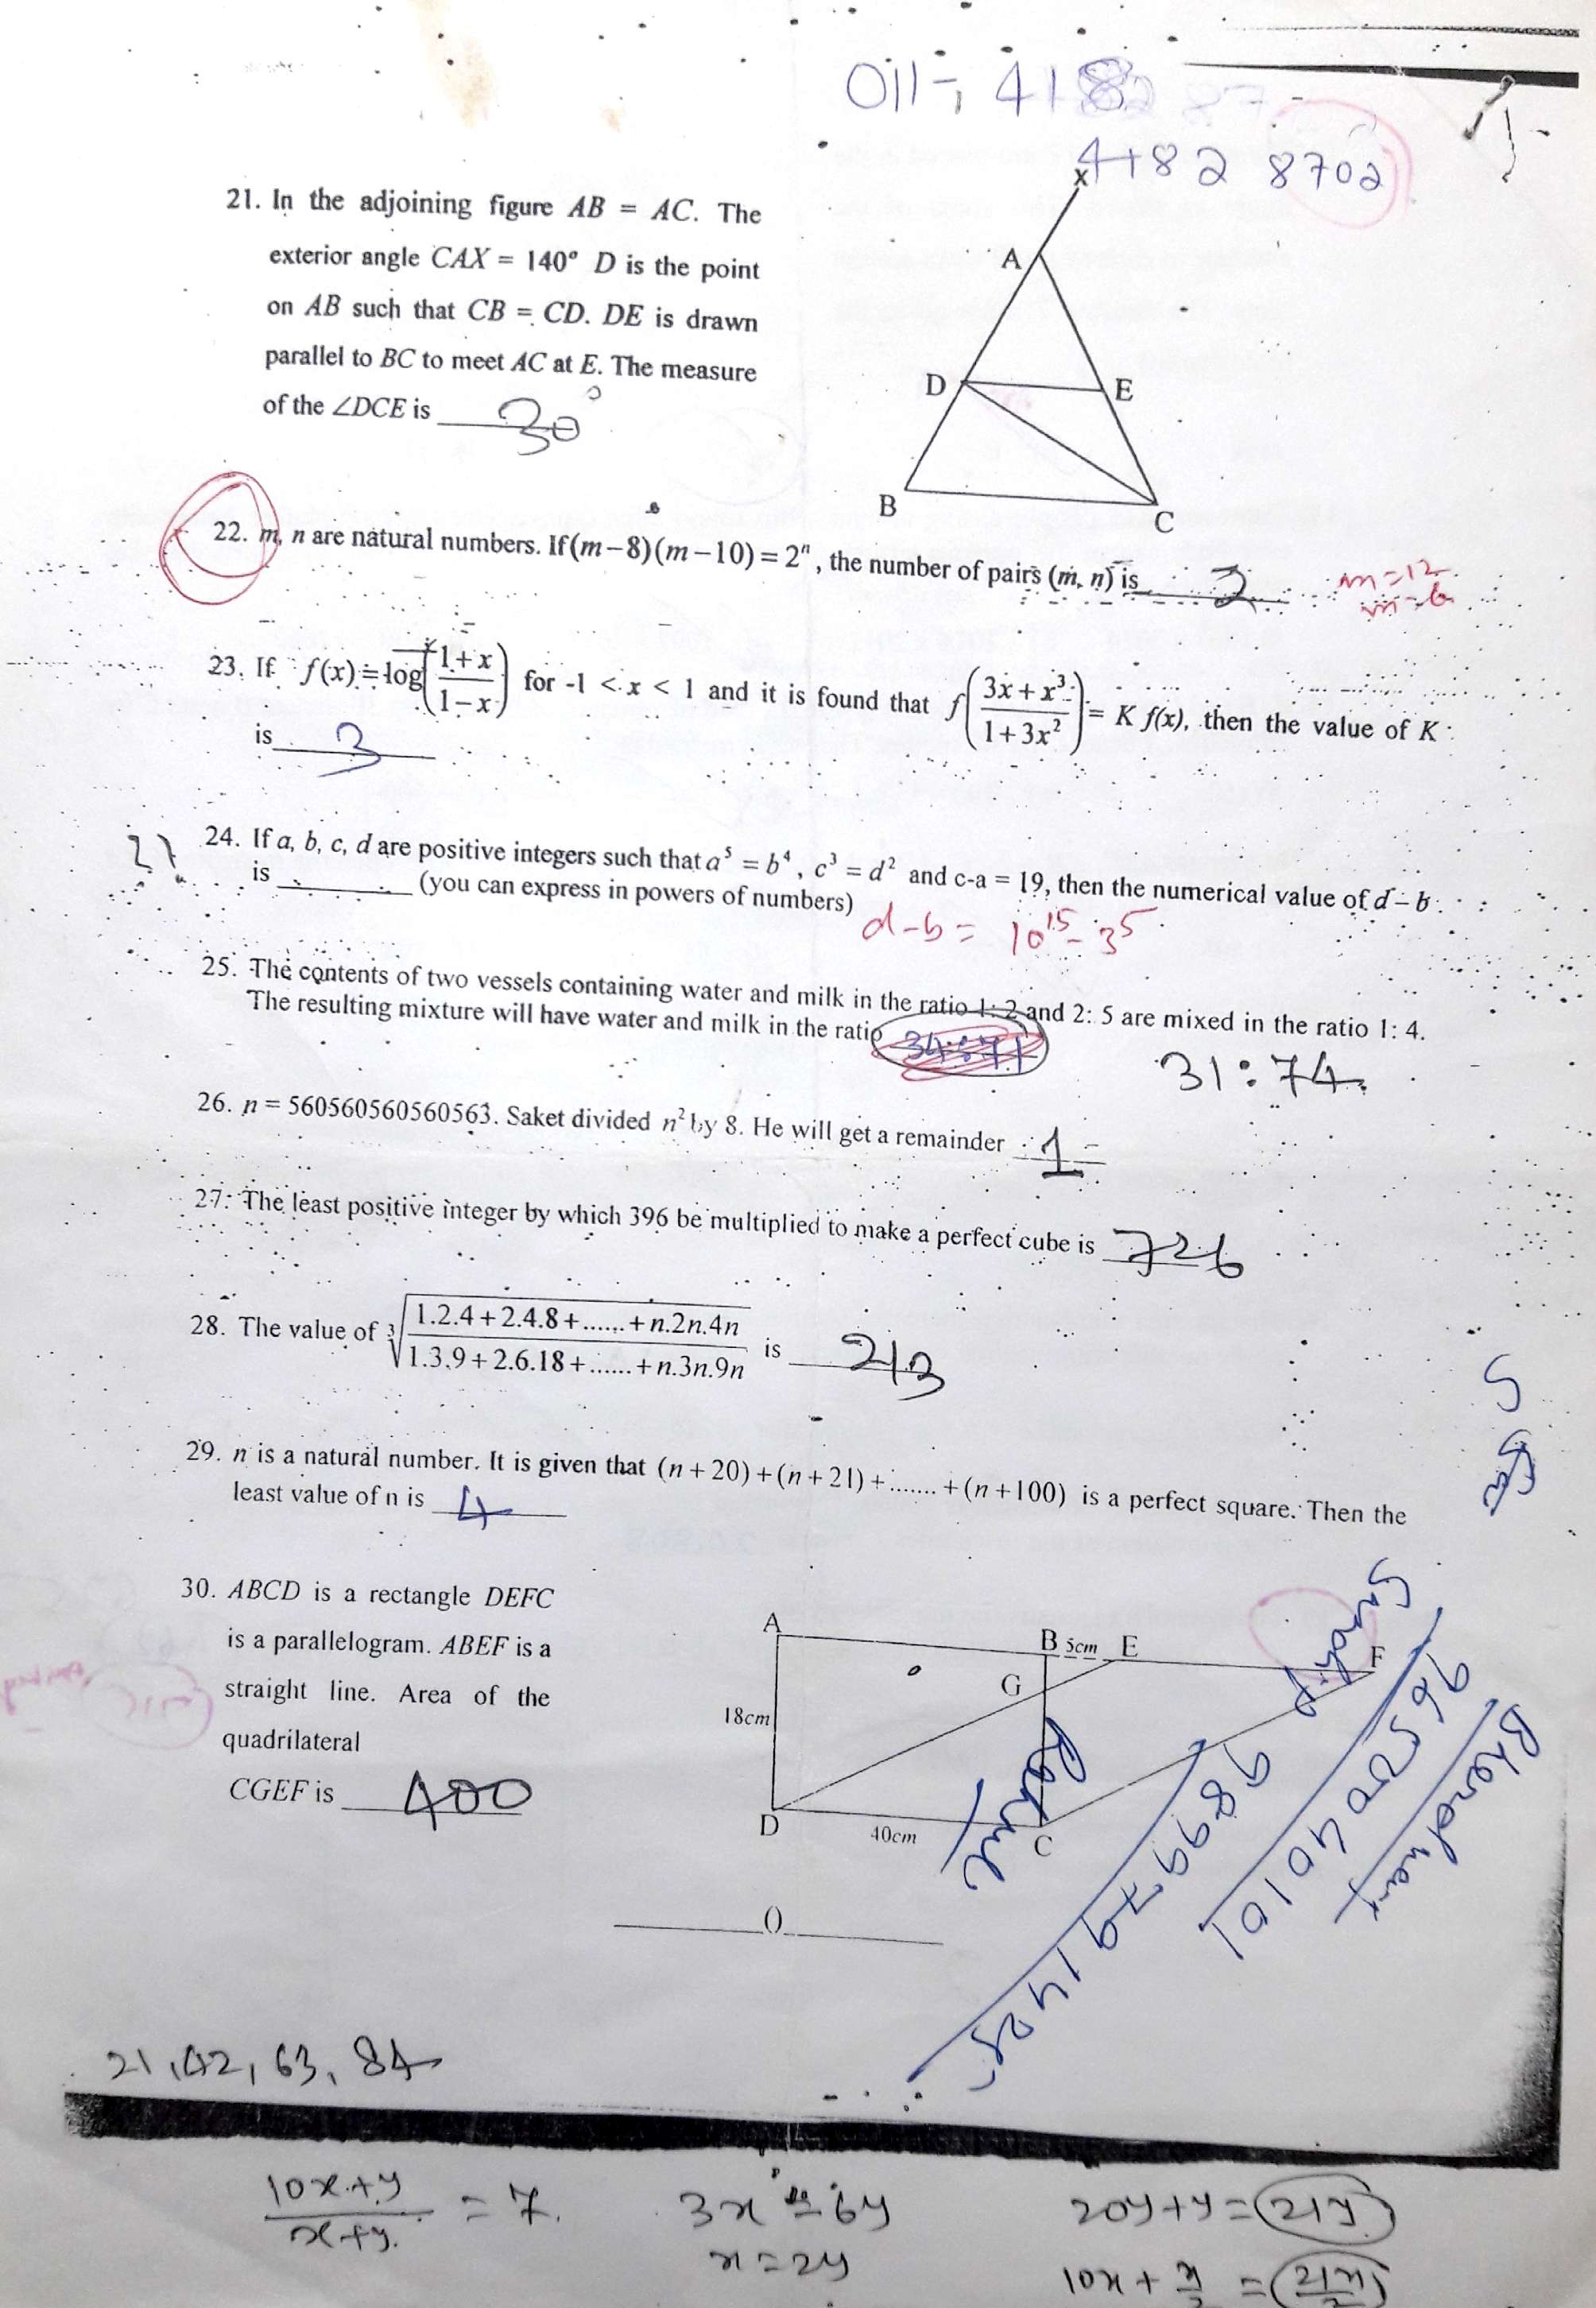 011-, 418
4182 8702
21. In the adjoining figure AB = AC. The
exterior angle CAX = 140° D is the point
on AB such that CB = CD. DE is drawn
parallel to BC to meet AC at E. The measure
of the ∠DCE is 30°
x
A
D
E
B
C
22. m, n are natural numbers. If (m−8)(m−10) = 2ⁿ, the number of pairs (m, n) is 2
m=12
m=6
23. If f(x) = log((1+x)/(1−x)) for -1 < x < 1 and it is found that f((3x+x³)/(1+3x²)) = K f(x), then the value of K
is 3
24. If a, b, c, d are positive integers such that a⁵ = b⁴, c³ = d² and c-a = 19, then the numerical value of d − b
is ______ (you can express in powers of numbers)
d-b = 10¹⁵ - 3⁵
25. The contents of two vessels containing water and milk in the ratio 1: 2 and 2: 5 are mixed in the ratio 1: 4.
The resulting mixture will have water and milk in the ratio 34:71
31:74
26. n = 560560560560563. Saket divided n² by 8. He will get a remainder 1
27. The least positive integer by which 396 be multiplied to make a perfect cube is 726
28. The value of ∛((1.2.4+2.4.8+......+n.2n.4n)/(1.3.9+2.6.18+......+n.3n.9n)) is 2/3
29. n is a natural number. It is given that (n+20)+(n+21)+.......+(n+100) is a perfect square. Then the
least value of n is 4
30. ABCD is a rectangle DEFC
is a parallelogram. ABEF is a
straight line. Area of the
quadrilateral
CGEF is 400
A
B 5cm E
F
G
18cm
D
40cm
C
Rahul
9899791425
9650040101
0
21, 42, 63, 84
(10x+y)/(x+y) = 7
3x = 6y
x = 2y
20y+y = 21y